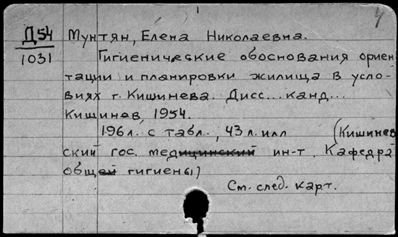 Д54
1031
Мунтян, Елена Николаевна.
Гигиенические обоснования ориен
тации и планировки жилища в усло-
виях г. Кишинева. Дисс... канд...
Кишинев, 1954.
196 л. с табл., 43 л. илл (Кишинев
ский гос. медицинский ин-т. Кафедра
общей гигиены)
См. след. карт.